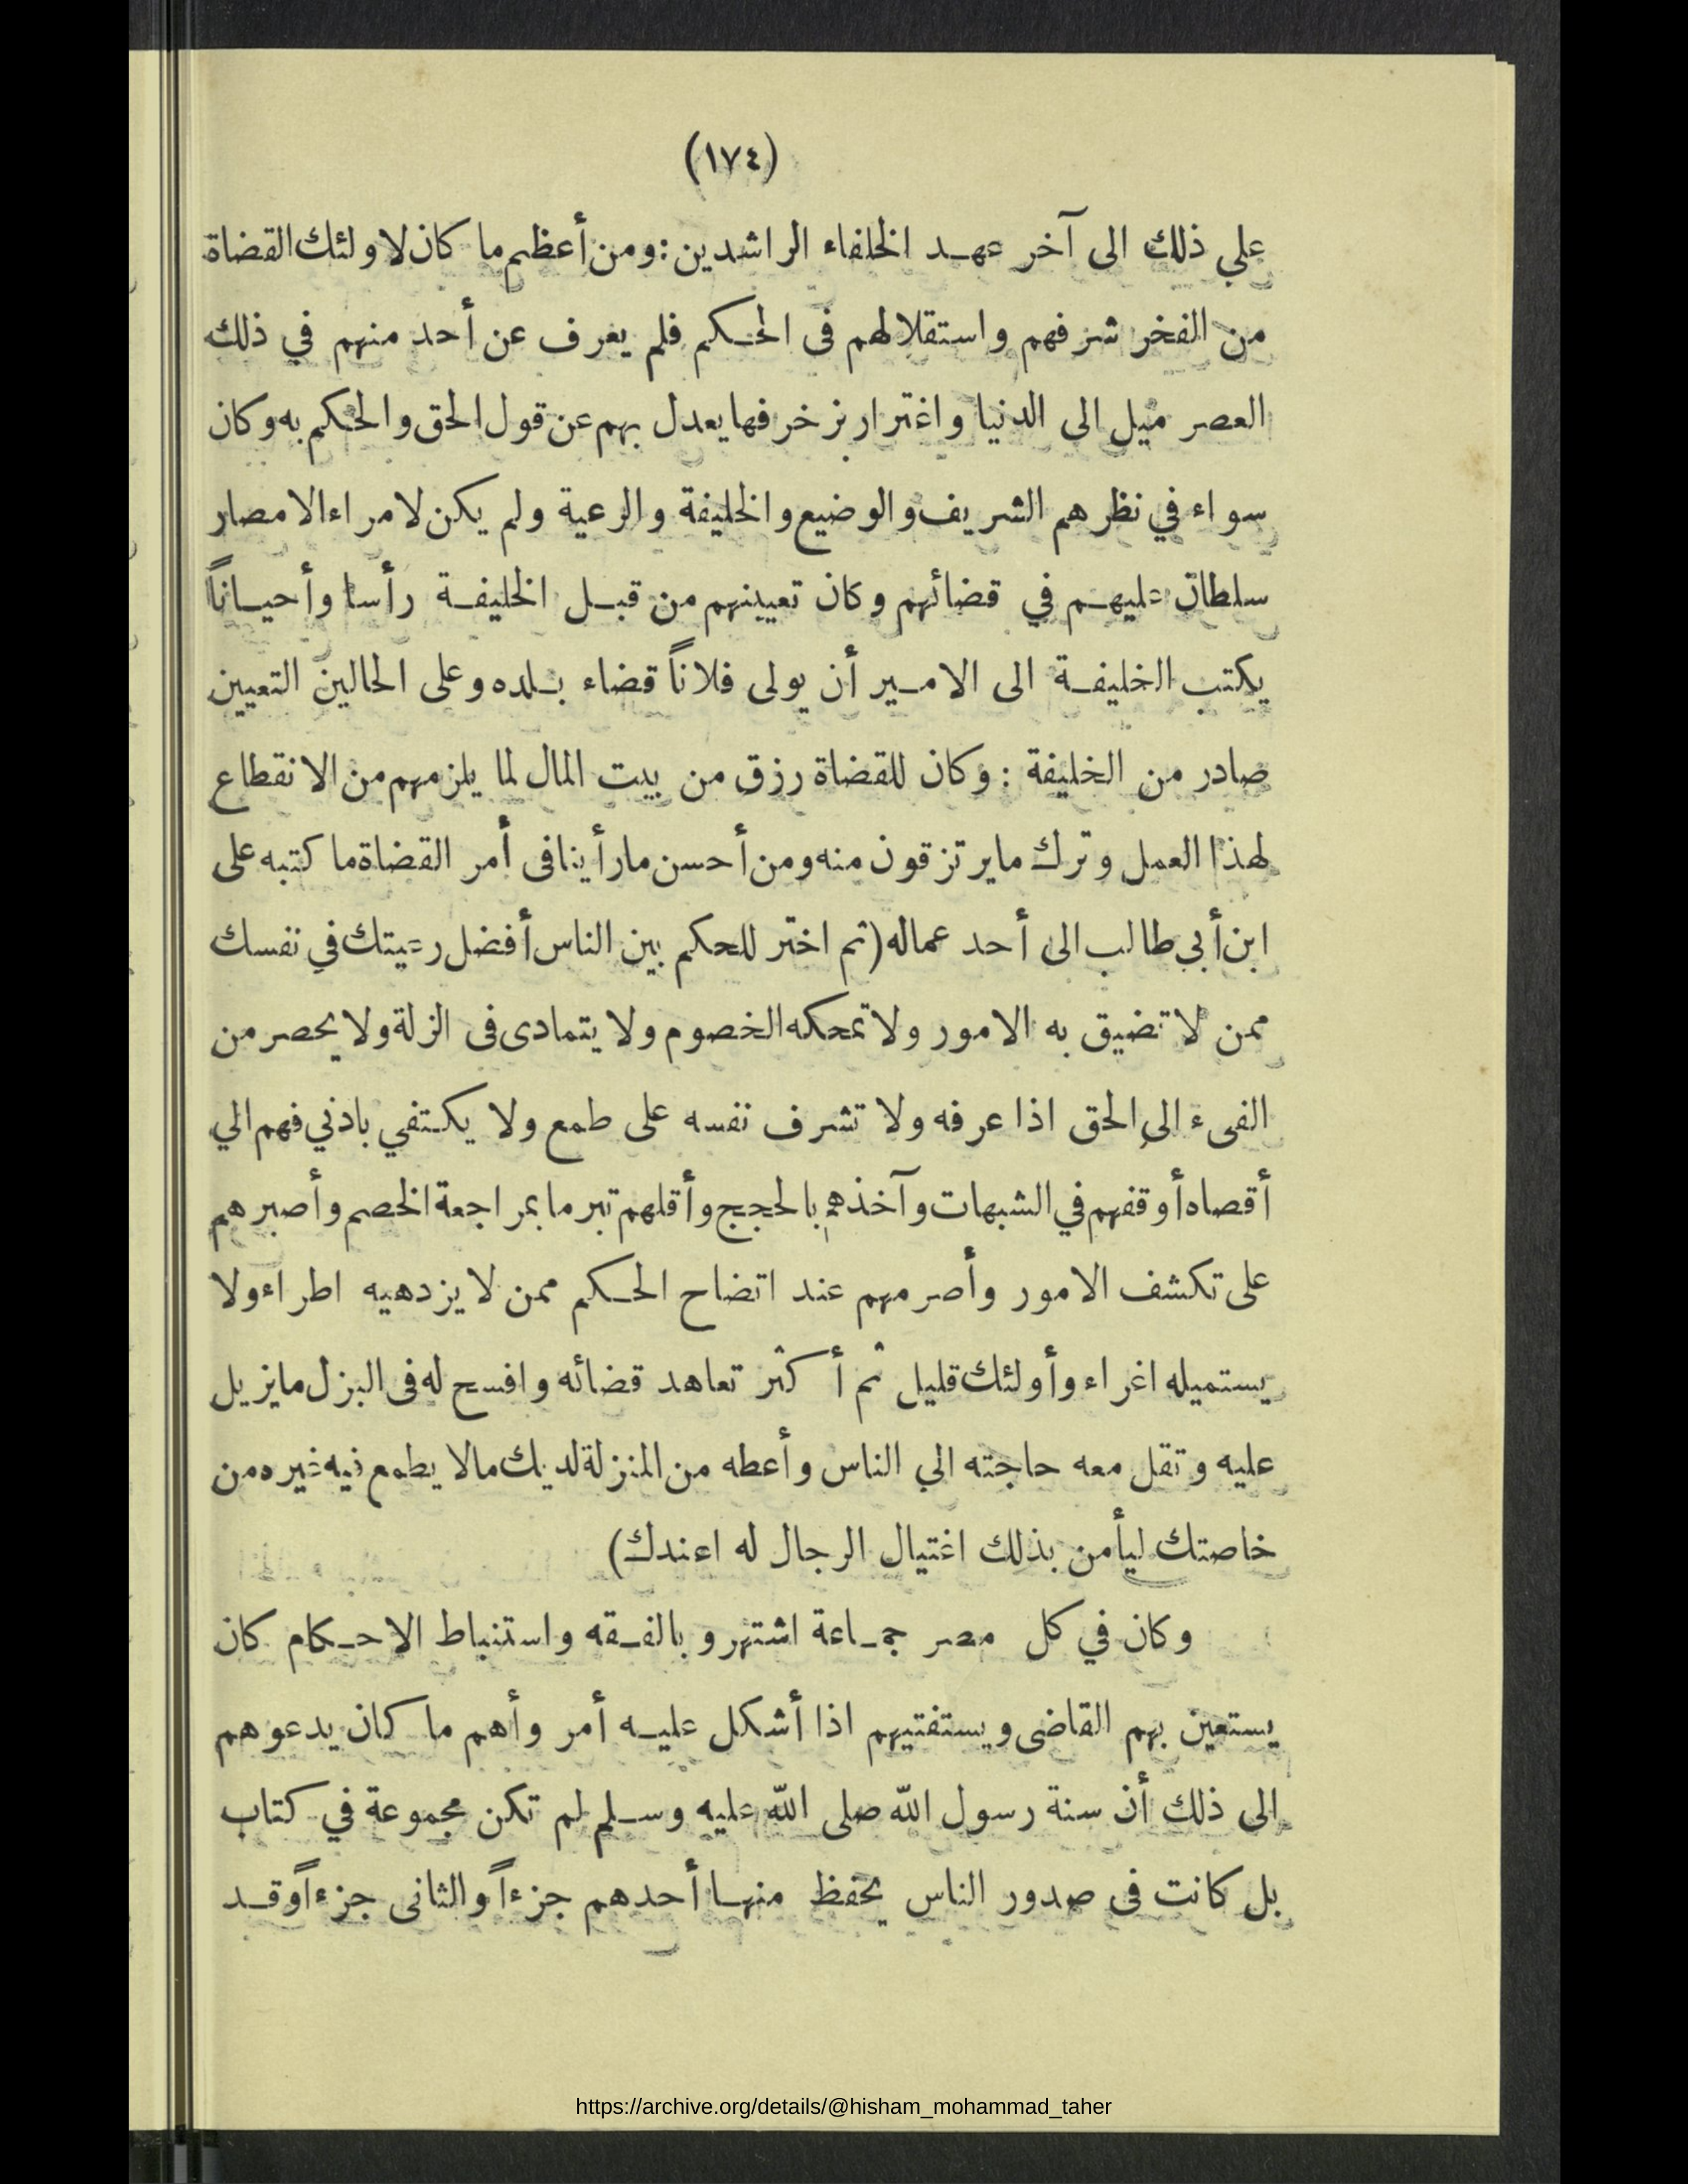 (١٧٤)
علي ذلك الى آخر عهد الخلفاء الراشدين : ومن أعظم ما كان لاولئك القضاة
من الفخر شرفهم واستقلالهم فى الحكم فلم يعرف عن أحد منهم في ذلك
العصر ميل الى الدنيا واغترار بزخرفها يعدل بهم عن قول الحق والحكم به وكان
سواء في نظرهم الشريف والوضيع والخليفة والرعية ولم يكن لامراء الامصار
سلطان عليهم في قضائهم وكان تعيينهم من قبل الخليفة رأسا وأحياناً
يكتب الخليفة الى الامير أن يولى فلاناً قضاء بلده وعلى الحالين التعيين
صادر من الخليفة : وكان للقضاة رزق من بيت المال لما يلزمهم من الانقطاع
لهذا العمل وترك مايرتزقون منه ومن أحسن مارأينا فى أمر القضاة ما كتبه على
ابن أبي طالب الى أحد عماله (ثم اختر للحكم بين الناس أفضل رعيتك في نفسك
ممن لا تضيق به الامور ولا تمحكه الخصوم ولا يتمادى فى الزلة ولا يحصر من
الفىء الي الحق اذا عرفه ولا تشرف نفسه على طمع ولا يكتفي بادني فهم الي
أقصاه أوقفهم في الشبهات وآخذهم بالحجج وأقلهم تبرما بمراجعة الخصم وأصبرهم
على تكشف الامور وأصرمهم عند اتضاح الحكم ممن لا يزدهيه اطراء ولا
يستميله اغراء وأولئك قليل ثم أكثر تعاهد قضائه وافسح له فى البزل مايزيل
عليه وتقل معه حاجته الي الناس وأعطه من المنزلة لديك مالا يطمع فيه غيره من
خاصتك ليأمن بذلك اغتيال الرجال له اءندك)
وكان في كل مصر جماعة اشتهروا بالفقه واستنباط الاحكام كان
يستعين بهم القاضى ويستفتيهم اذا أشكل عليه أمر وأهم ما كان يدعوهم
الى ذلك أن سنة رسول الله صلى الله عليه وسلم لم تكن مجموعة في كتاب
بل كانت فى صدور الناس يحفظ منها أحدهم جزءاً والثانى جزءاً وقد
https://archive.org/details/@hisham_mohammad_taher